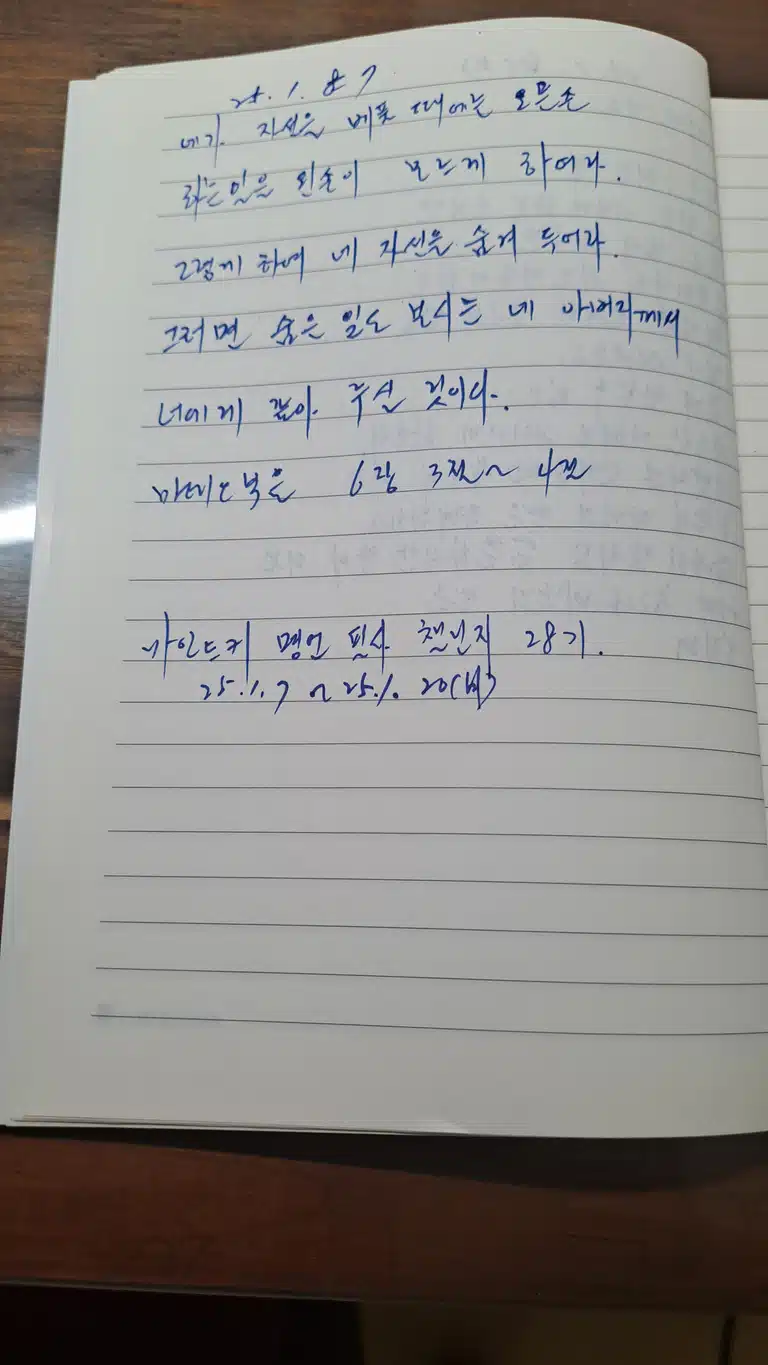 25. 1. 8 7
네가 자선을 베풀 때에는 오른손
하는 일을 왼손이 모르게 하여라.
그렇게 하여 네 자선을 숨겨 두어라.
그러면 숨은 일도 보시는 네 아버지께서
너에게 갚아 주실 것이다.
마태오 복음 6장 3절~4절
카인드키 명언 필사 챌린지 28기.
25.1.7 ~ 25.1. 20